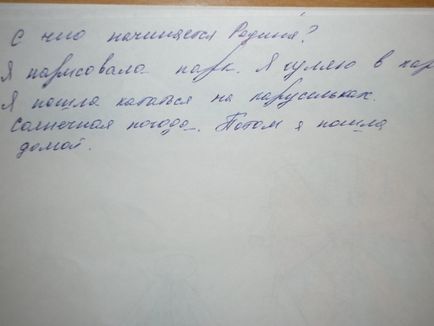 С чио начинается Родина?
Я нарисовала парк. Я гуляю в пар
Я пошла кататся на карусельках.
Солнечная погода. Потом я пошла
домой.